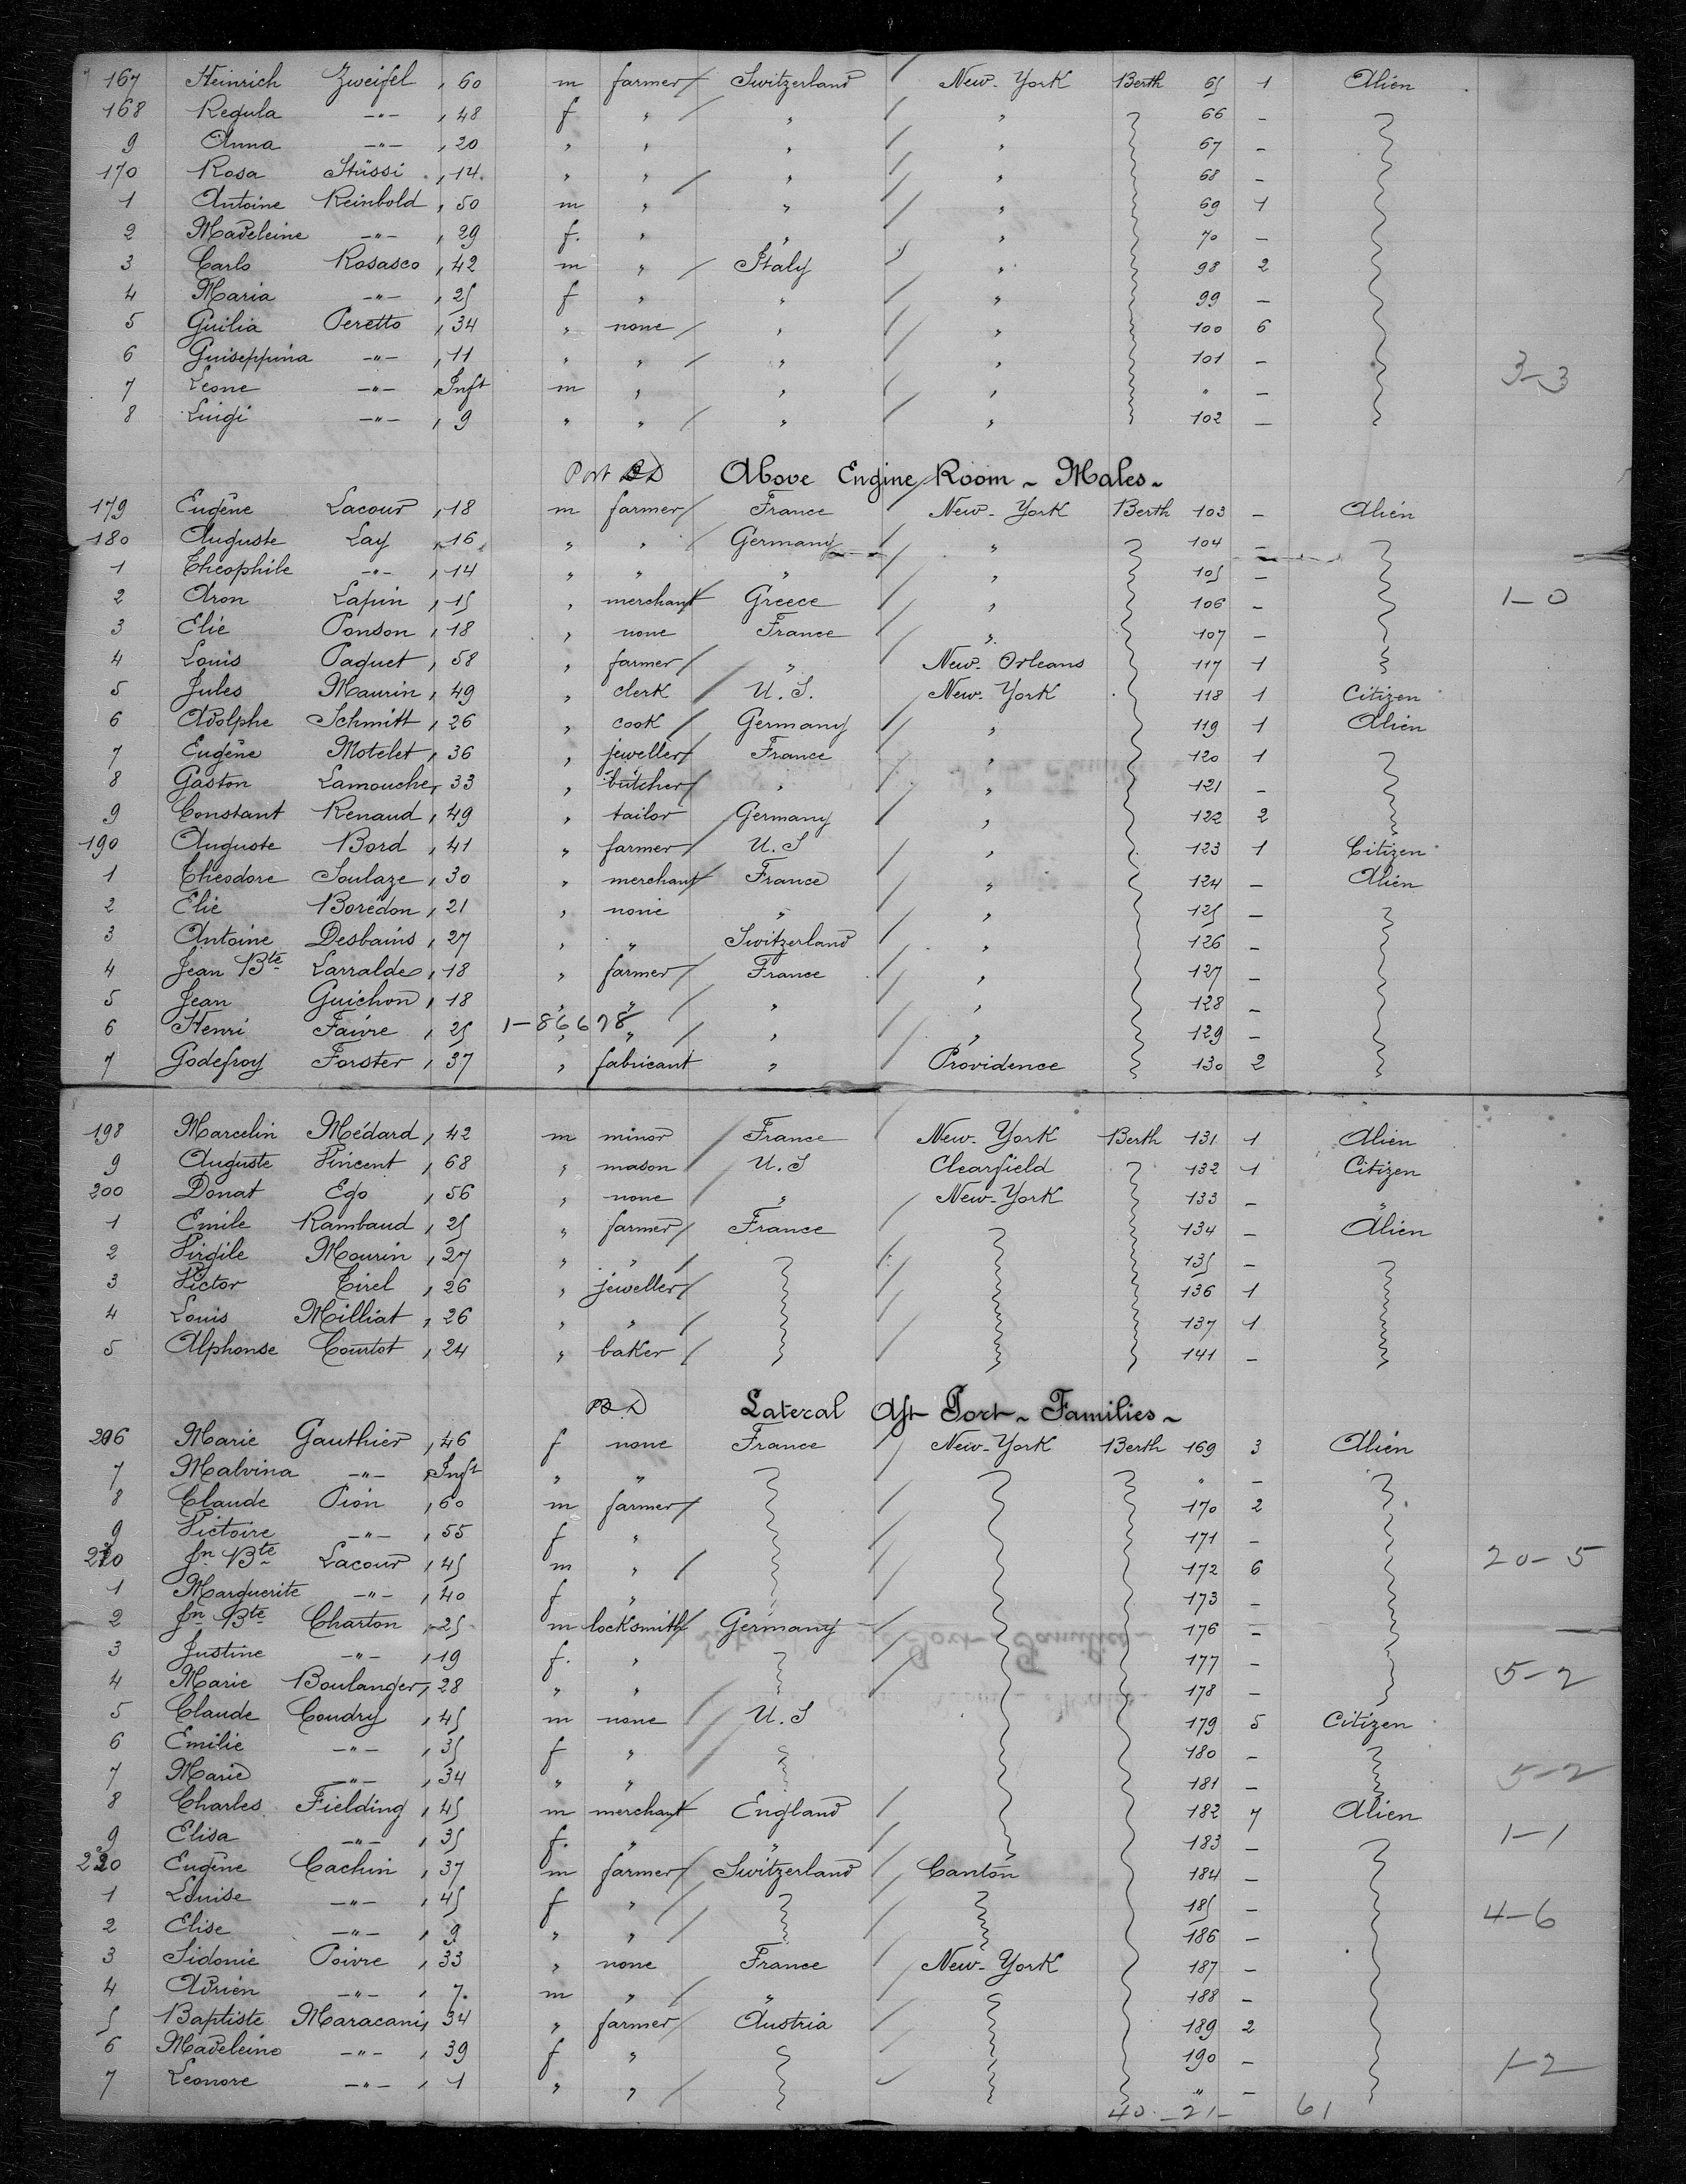 167 Heinrich Zweifel , 60 m farmer Switzerland New-York Berth 65 1 Alien
168 Regula -"- , 48 f " " " 66 -
9 Anna -"- , 20 " " " " 67 -
170 Rosa Stüssi , 14 " " " " 68 -
1 Antoine Reinbold , 50 m " " " 69 1
2 Madeleine -"- , 29 f. " " " 70 -
3 Carlo Rosasco , 42 m " Italy " 98 2
4 Maria -"- , 25 f " " " 99 -
5 Guilia Peretto , 34 " none " " 100 6
6 Guiseppina -"- , 11 " " " " 101 -
3-3
7 Leone -"- Inft m " " " " -
8 Luigi -"- , 9 " " " " 102 -
Port BD Above Engine Room - Males -
179 Eugène Lacour , 18 m farmer France New-York Berth 103 - Alien
180 Auguste Lay , 16 " " Germany " 104 -
1 Théophile -"- , 14 " " " " 105 -
2 Aron Lapin , 15 " merchant Greece " 106 - 1-0
3 Elie Ponson , 18 " none France " 107 -
4 Louis Paquet , 58 " farmer " New-Orleans 117 1
5 Jules Maurin , 49 " clerk U.S. New-York 118 1 Citizen
6 Adolphe Schmitt , 26 " cook Germany " 119 1 Alien
7 Eugène Motelet , 36 " jeweller France " 120 1
8 Gaston Lamouche , 33 " butcher " " 121 -
9 Constant Renaud , 49 " tailor Germany " 122 2
190 Auguste Bord , 41 " farmer U.S " 123 1 Citizen
1 Théodore Soulaze , 30 " merchant France " 124 - Alien
2 Elie Borédon , 21 " none " " 125 -
3 Antoine Desbains , 27 " " Switzerland " 126 -
4 Jean Bte Larralde , 18 " farmer France " 127 -
5 Jean Guichon , 18 " " " " 128 -
6 Henri Faivre , 25 1-86678 " " " 129 -
7 Godefroy Forster , 37 " fabricant " Providence 130 2
198 Marcelin Médard , 42 m minor France New-York Berth 131 1 Alien
9 Auguste Vincent , 68 " mason U.S Clearfield 132 1 Citizen
200 Donat Ego , 56 " none " New-York 133 - "
1 Emile Rambaud , 25 " farmer France 134 - Alien
2 Virgile Mourin , 27 " " 135 -
3 Victor Tirel , 26 " jeweller 136 1
4 Louis Milliat , 26 " " 137 1
5 Alphonse Courtot , 24 " baker 141 -
B.D Lateral Aft Port - Families -
206 Marie Gauthier , 46 f none France New-York Berth 169 3 Alien
7 Malvina -"- Inft " " " -
8 Claude Pion , 60 m farmer 170 2
9 Victoire -"- , 55 f " 171 -
210 Jn Bte Lacour , 45 m " 172 6 20-5
1 Marguerite -"- , 40 f " 173 -
2 Jn Bte Charton , 25 m locksmith Germany 176 -
3 Justine -"- , 19 f. " 177 -
5-2
4 Marie Boulanger , 28 " " 178 -
5 Claude Coudry , 45 m none U.S 179 5 Citizen
6 Emilie -"- , 35 f " 180 -
7 Marie -"- , 34 " " 181 - 5-2
8 Charles Fielding , 45 m merchant England 182 7 Alien
9 Elisa -"- , 35 f. " " 183 - 1-1
220 Eugène Cachin , 37 m farmer Switzerland Canton 184 -
1 Louise -"- , 45 f " 185 -
4-6
2 Elise -"- , 9 " " 186 -
3 Sidonie Poivre , 33 " none France New-York 187 -
4 Adrien -"- , 7. m " " 188 -
5 Baptiste Maracani , 34 " farmer Austria 189 2
6 Madeleine -"- , 39 f " 190 -
1-2
7 Leonore -"- , 1 " " " -
40-21- 61